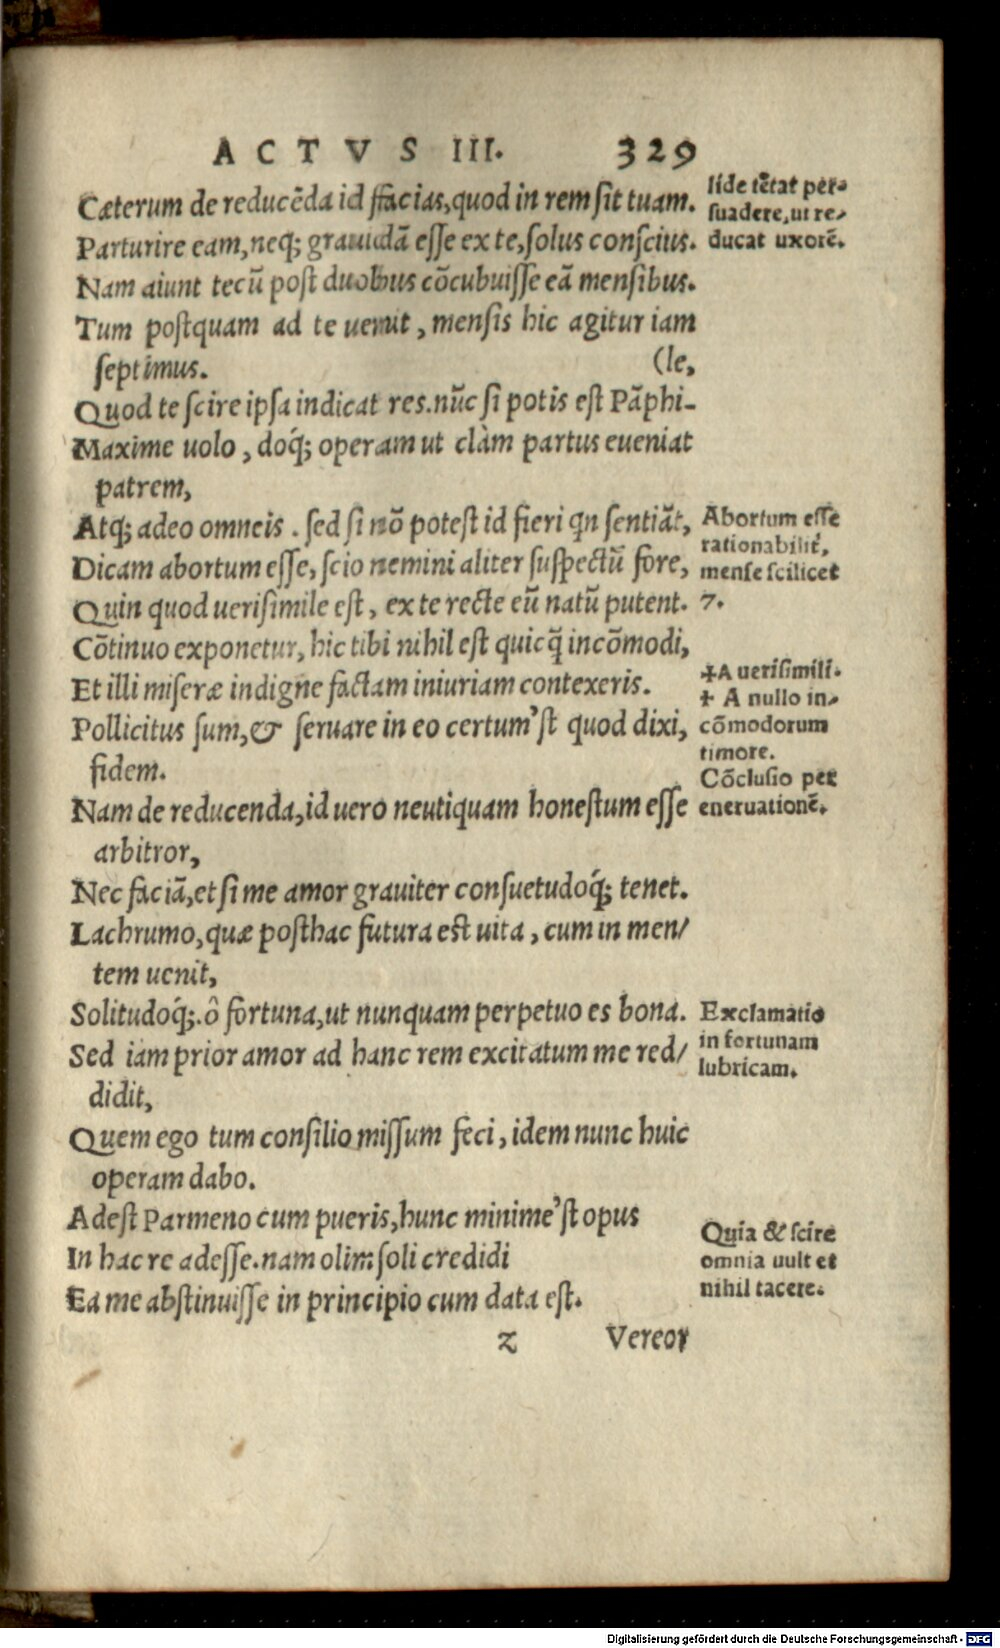 ACTVS III. 329
Cæterum de reducẽda id ſfacias,quod in rem ſit tuam.
Parturire eam,neq; grauidã eſſe ex te,ſolus conſcius.
Nam aiunt tecũ poſt duobus cõcubuiſſe eã menſibus.
Tum poſtquam ad te uenit, menſis hic agitur iam
ſeptimus. (le,
Quod te ſcire ipſa indicat res.nũc ſi potis eſt Pãphi-
Maxime uolo, doq́; operam ut clàm partus eueniat
patrem,
Atq; adeo omneis. ſed ſi nõ poteſt id fieri qn ſentiãt,
Dicam abortum eſſe, ſcio nemini aliter ſuſpectũ fore,
Quin quod ueriſimile eſt, ex te recte eũ natũ putent.
Cõtinuo exponetur, hic tibi nihil eſt quicq̃ incõmodi,
Et illi miſeræ indigne factam iniuriam contexeris.
Pollicitus ſum,& ſeruare in eo certum'ſt quod dixi,
fidem.
Nam de reducenda,id uero neutiquam honeſtum eſſe
arbitror,
Nec faciã,et ſi me amor grauiter conſuetudoq́; tenet.
Lachrumo,quæ poſthac futura eſt uita, cum in men/
tem uenit,
Solitudoq́;.ô fortuna,ut nunquam perpetuo es bona.
Sed iam prior amor ad hanc rem excitatum me red/
didit,
Quem ego tum conſilio miſſum feci, idem nunc huic
operam dabo.
Adeſt Parmeno cum pueris,hunc minime'ſt opus
In hac re adeſſe.nam olim ſoli credidi
Ea me abſtinuiſſe in principio cum data eſt.
z Vereor
ſide tẽtat per-
ſuadere,ut re-
ducat uxorẽ.
Abortum eſſe
rationabilit̃,
menſe ſcilicet
7.
✢A ueriſimili.
✢ A nullo in-
cõmodorum
timore.
Cõcluſio per
eneruationẽ.
Exclamatio
in fortunam
lubricam.
Quia & ſcire
omnia uult et
nihil tacere.
Digitalisierung gefördert durch die Deutsche Forschungsgemeinschaft - DFG